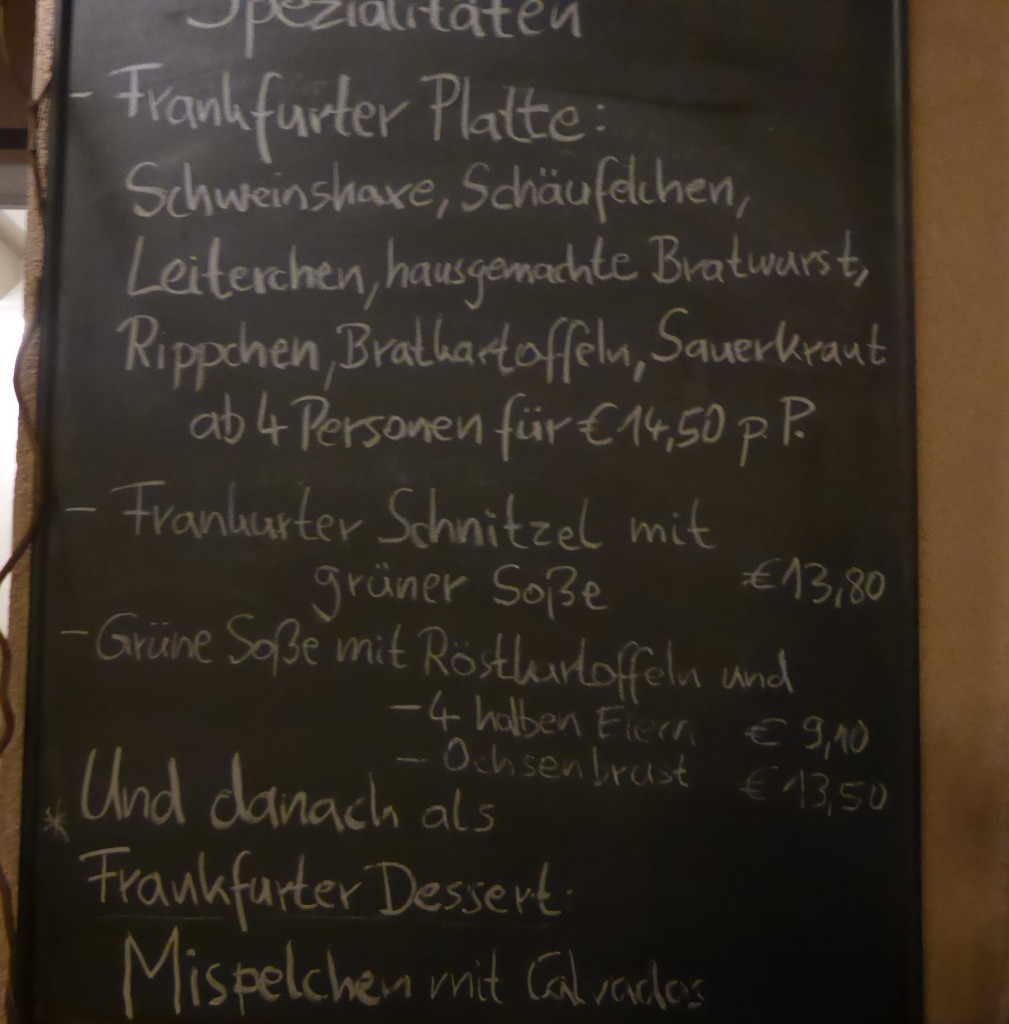 Spezialitäten
- Frankfurter Platte:
Schweinshaxe, Schäufelchen,
Leiterchen, hausgemachte Bratwurst,
Rippchen, Bratkartoffeln, Sauerkraut
ab 4 Personen für € 14,50 p.P.
- Frankurter Schnitzel mit
grüner Soße € 13,80
- Grüne Soße mit Röstkartoffeln und
- 4 halben Eiern € 9,10
- Ochsenbrust € 13,50
* Und danach als
Frankfurter Dessert:
Mispelchen mit Calvados